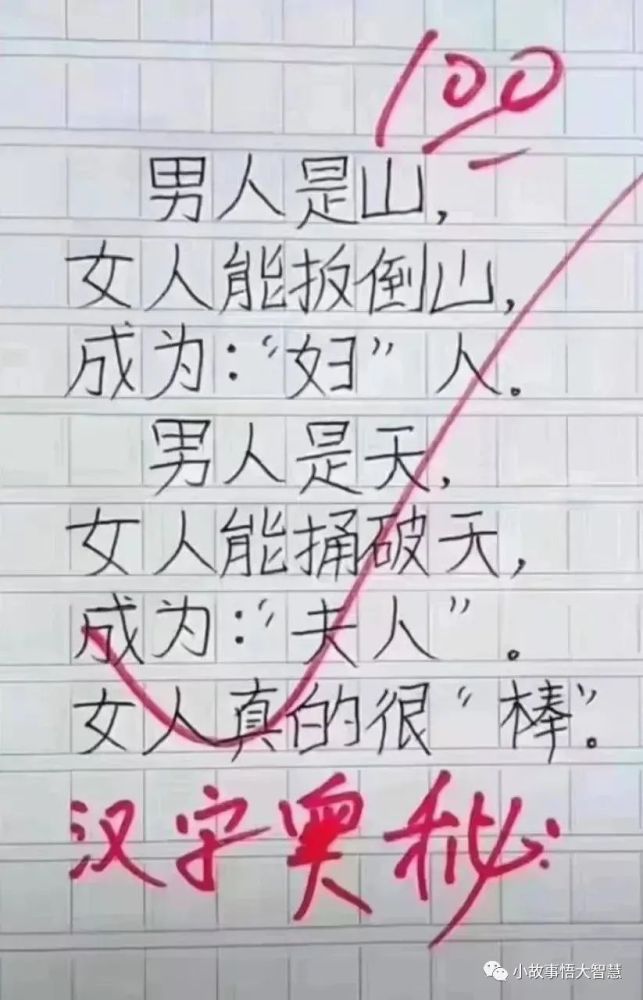 100
男人是山,
女人能扳倒山,
成为:“妇”人。
男人是天,
女人能捅破天,
成为:“夫人”。
女人真的很“棒”。
汉字奥秘
小故事悟大智慧